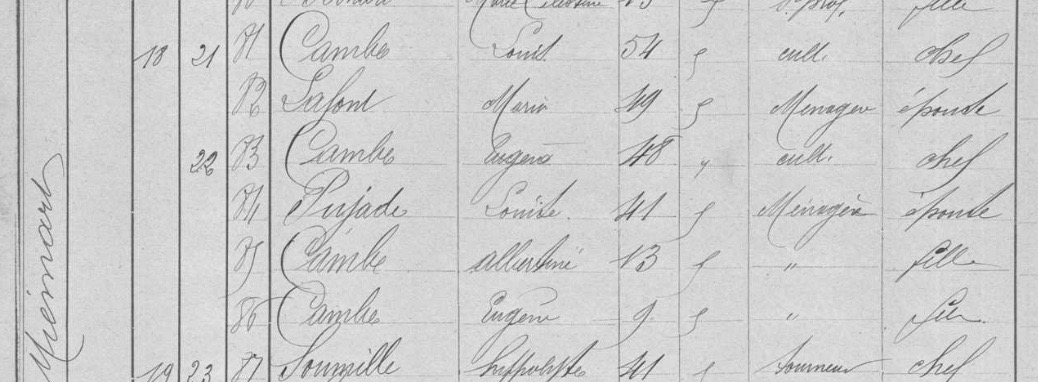 Marie Célestine 13 fille
18 21 81 Cambe Louis 54 f cult. chef
82 Lafont Maria 49 f Ménagère épouse
22 83 Cambe Eugène 48 " cult. chef
84 Pujade Louise 41 f Ménagère épouse
85 Cambe albertine 13 f " fille
86 Cambe Eugène 9 f " fils
19 23 87 Soumille hippolyte 41 f tourneur chef